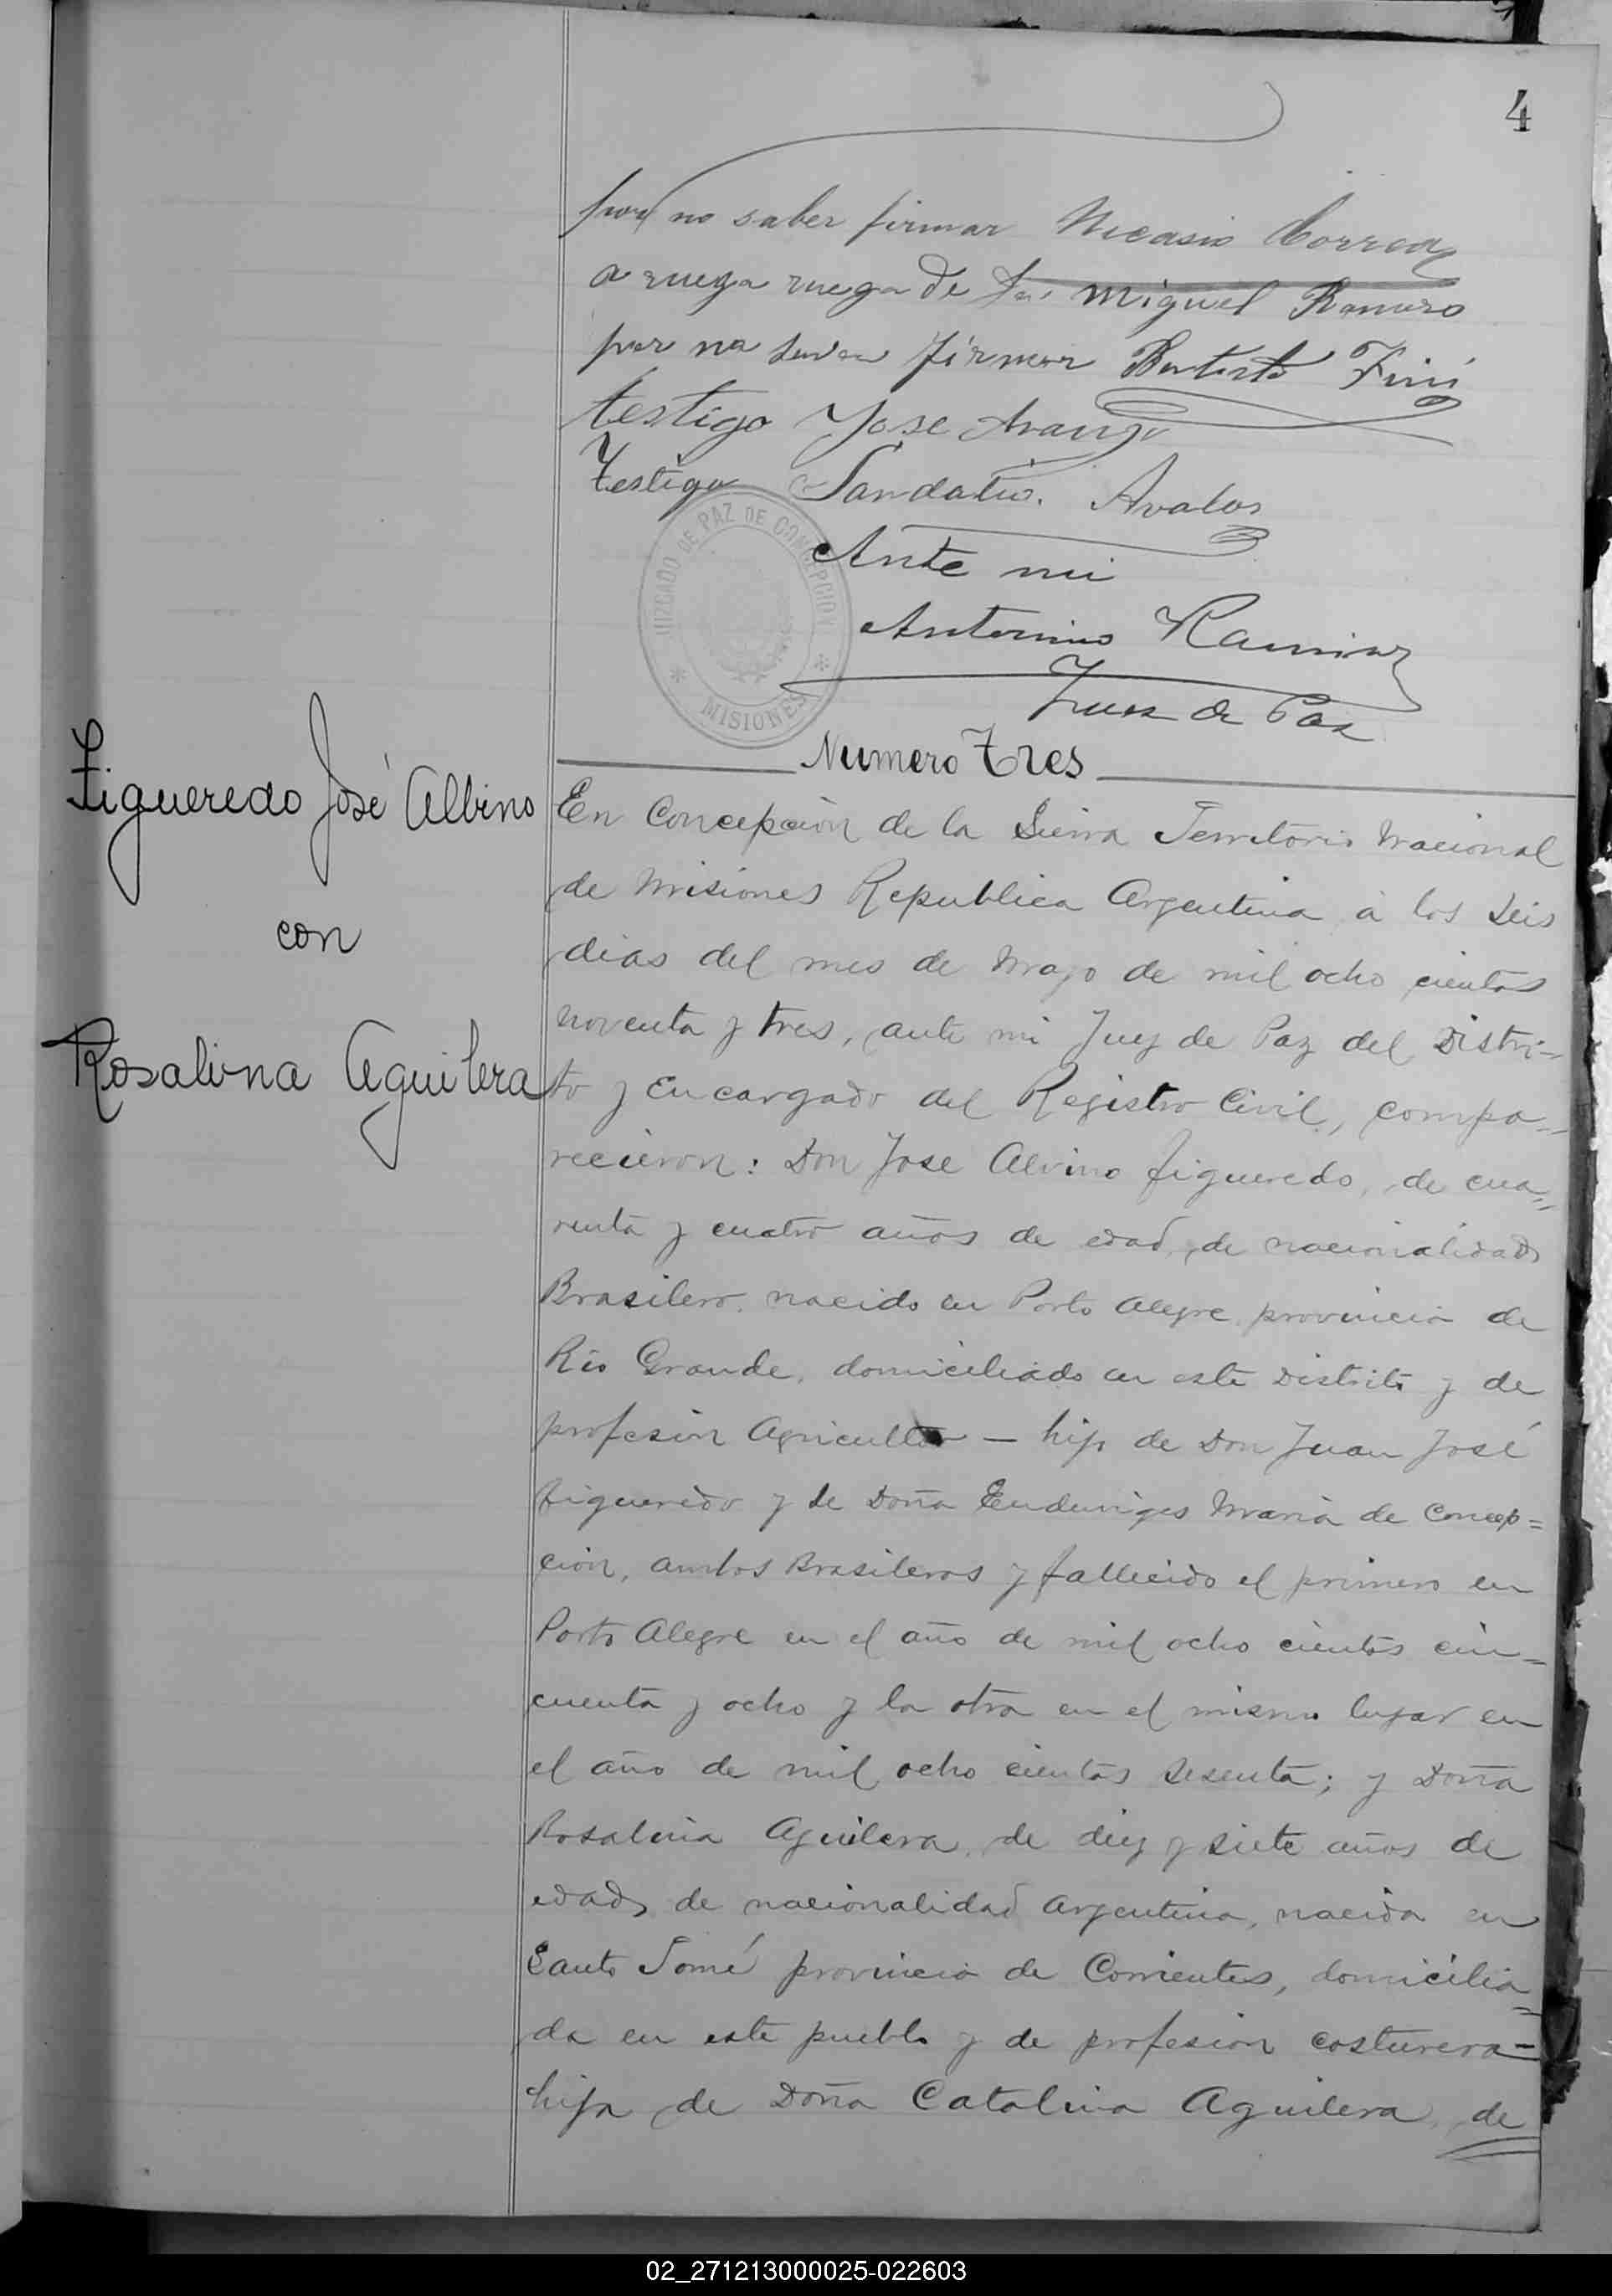 4
por no saber firmar Nicasio Correa
a ruega ruega de Miguel
por na firmar Fini
testigo Jose Araujo
Testigo Sandalio. Avalos
JUZGADO DE PAZ DE CONCEPCION
MISIONES
Ante mi
Antonino Ramirez
Juez de Paz
Numero Tres
Figueredo José Albino
con
Rosalina Aguilera
En Concepcion de la Sierra Territorio Nacional
de Misiones Republica Argentina á los Seis
dias del mes de Mayo de mil ocho cientos
noventa y tres, ante mi Juez de Paz del Distri-
to y Encargado del Registro Civil, compa-
recieron: Don Jose Alvino figueredo, de cua-
renta y cuatro años de edad, de nacionalidad
Brasilero, nacido en Porto Alegre provincia de
Rio Grande, domiciliado en este Distrito y de
profesion Agricultor — hijo de Don Juan José
figueredo y de Doña Maria de Concep=
cion, ambos Brasileros y fallecido el primero en
Porto Alegre en el año de mil ocho cientos cin=
cuenta y ocho y la otra en el mismo lugar en
el año de mil ocho cientos sesenta; y Doña
Rosalina Aguilera, de diez y siete años de
edad, de nacionalidad Argentina, nacida en
Santo Tomé provincia de Corrientes, domicilia=
da en este pueblo y de profesion costurera-
hija de Doña Catalina Aguilera, de
02_271213000025-022603